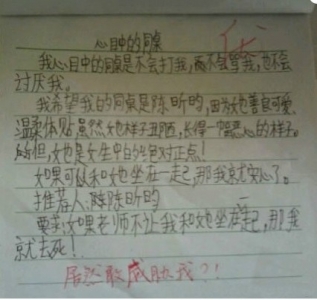 心目中的同桌
优
我心目中的同桌是不会打我,而不会骂我,也不会
讨厌我。
我希望我的同桌是陈昕昀,因为她善良可爱、
温柔体贴虽然她样子丑陋,长得一幅恶心的样子。
但,她是女生中的绝对正点!
如果可似和她坐在一起,那我就安心了。
推荐人:陈昕昀
要求:如果老师不让我和她坐在一起,那我
就去死!
居然敢威胁我?!